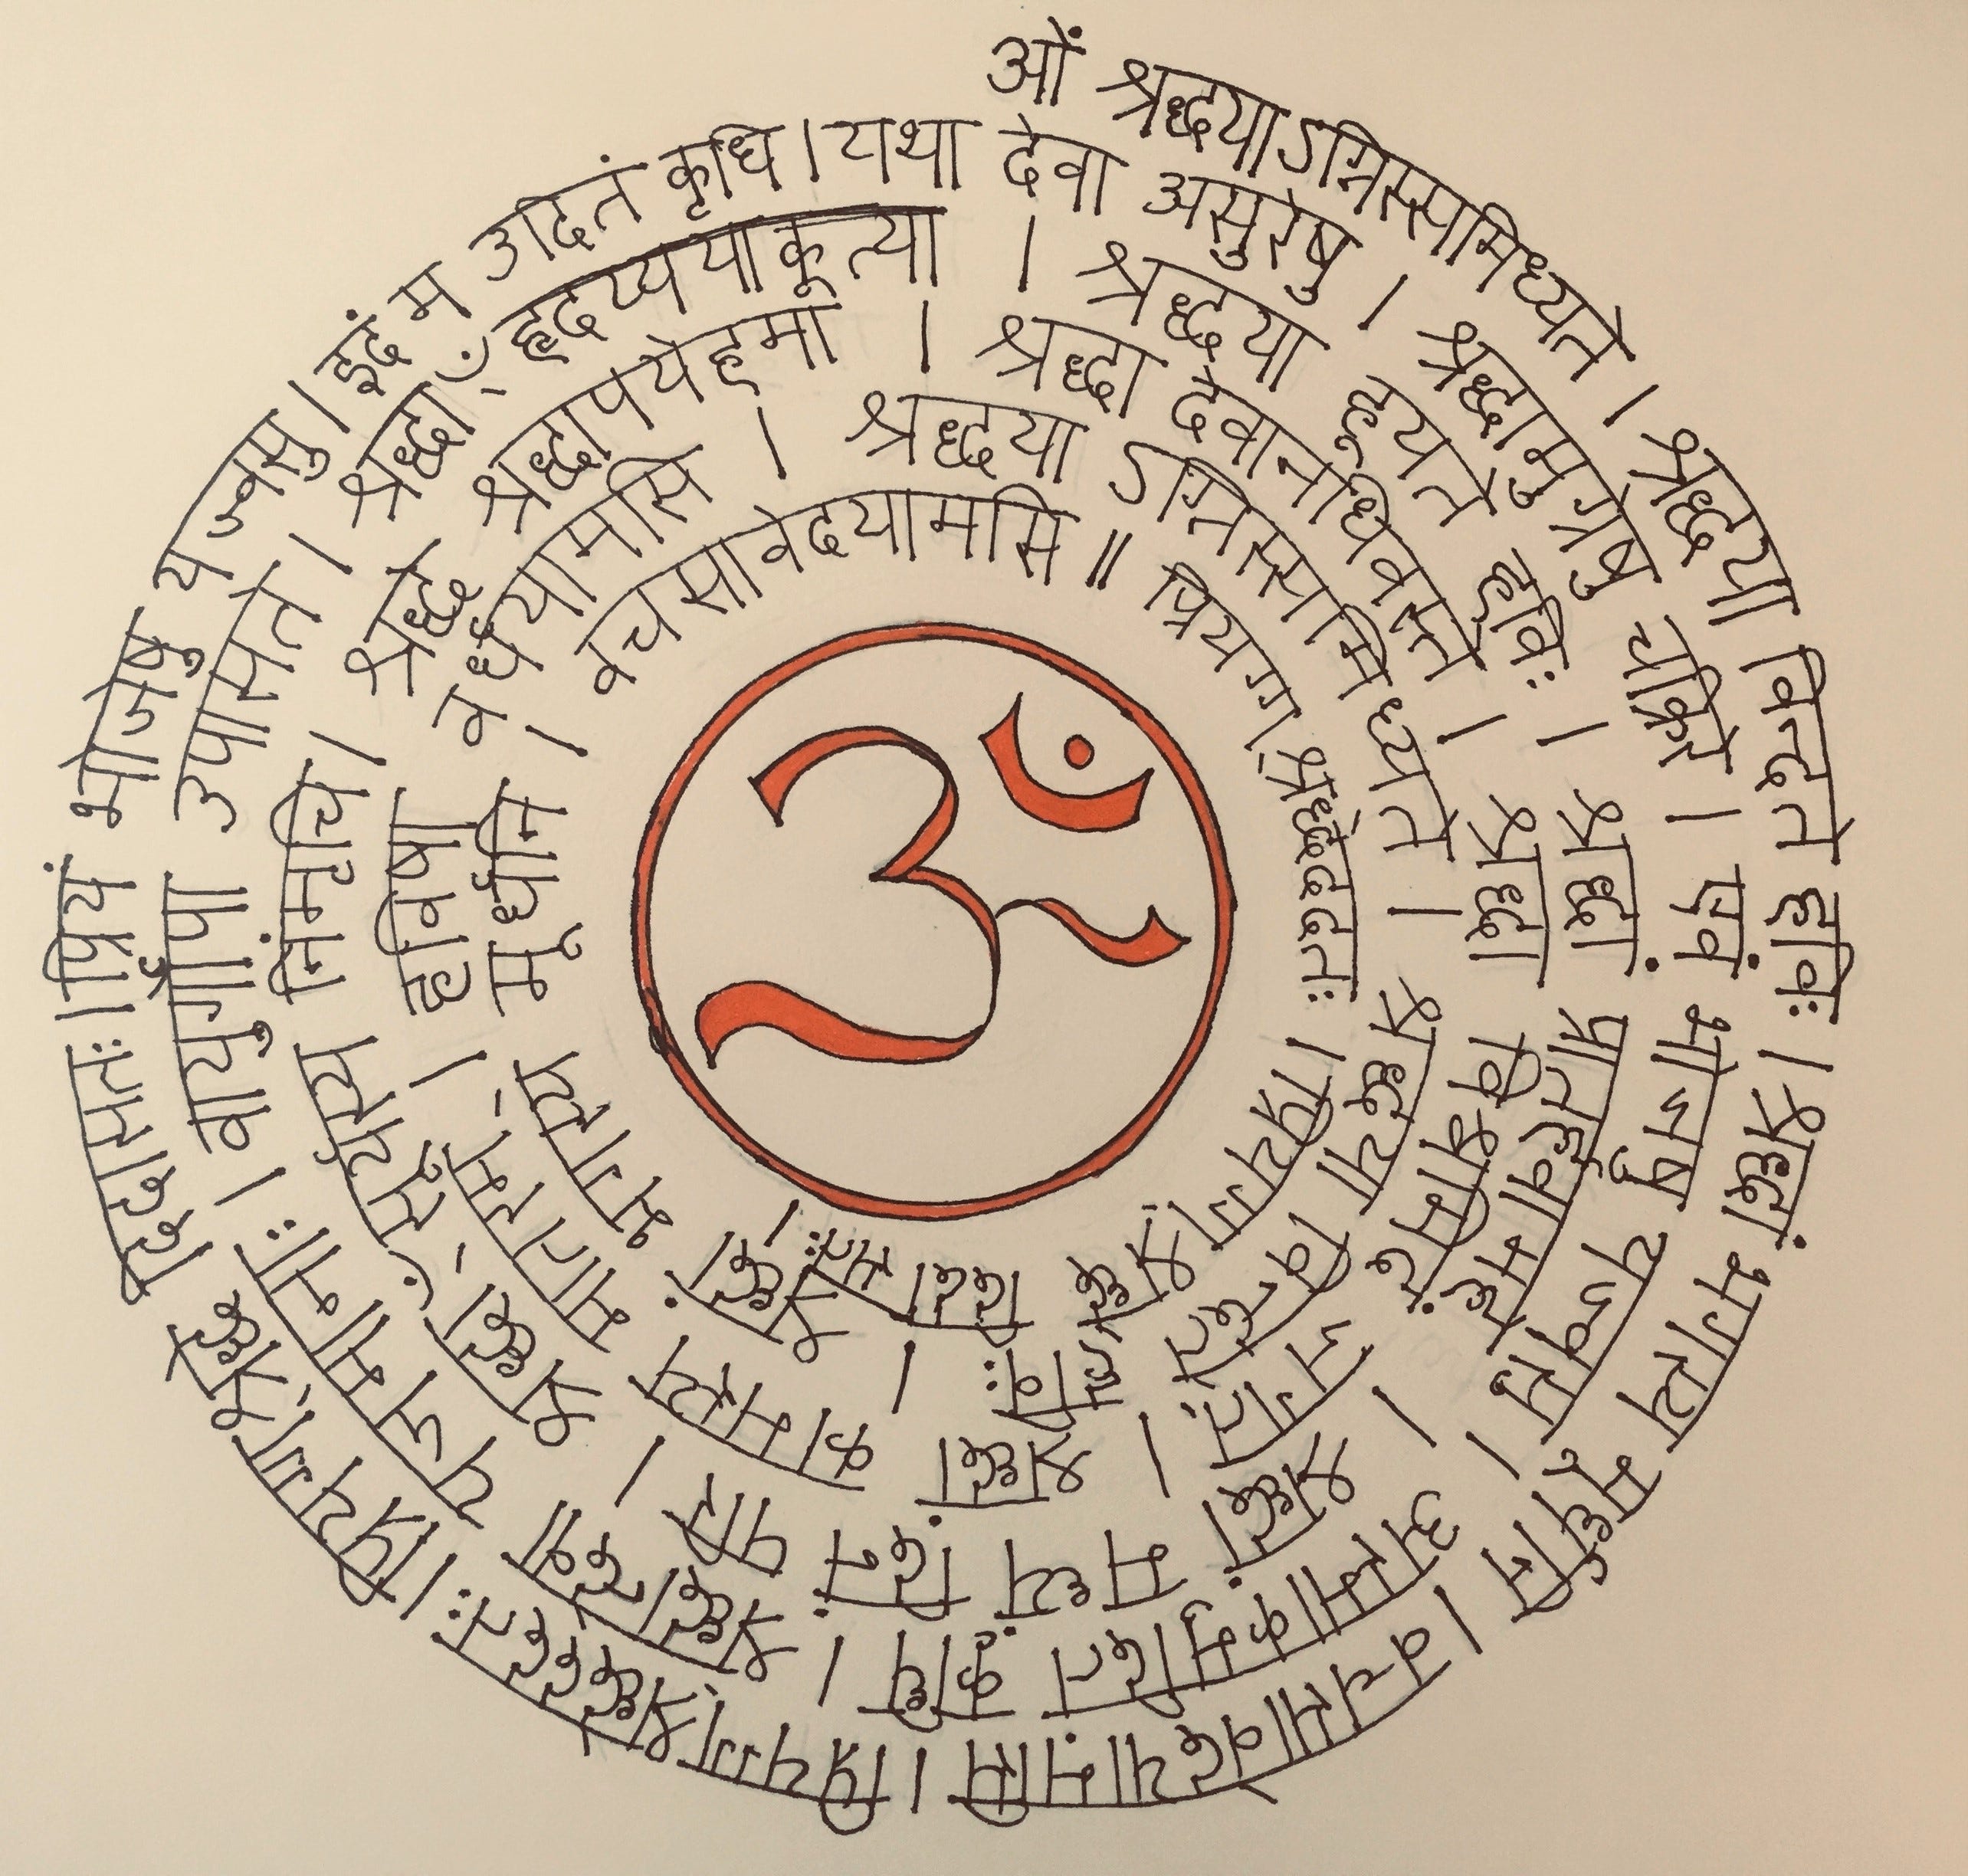 ओं श्रद्धयाऽग्निस्समिध्यते ।
श्रद्धया विन्दते हविः ।
श्रद्धां भगस्य मूर्धनि ।
वचसावेदयामसि ।
प्रियग् श्रद्धेददतः ।
प्रियग् श्रद्धे दिदासतः ।
प्रियं भोजेषु यज्वसु ।
इदं म उदितं कृधि ।
यथा देवा असुरेषु ।
श्रद्धामुग्रेषु चक्रिरे ।
एवं भोजेषु यज्वसु ।
अस्माकमुदितं कृधि ।
श्रद्धांदेवा यजमानाः ।
वायुगोपा उपासते ।
श्रद्धाँ हृदय्ययाकूत्या ।
श्रद्धया हूयते हविः ।
श्रद्धां प्रातर्हवामहे ।
श्रद्धां मध्यं दिनं परि ।
श्रद्धाँ सूर्यस्य निंमृचि ।
श्रद्धे श्रद्धापयेहमा ।
श्रद्धा देवानधिवस्ते ।
श्रद्धा विश्वमिदं जगत् ।
श्रद्धां कामस्य मातरम् ।
हविषा वर्धयामसि ।
श्रद्धया ऽग्निस्समिध्यते ।
श्रद्धया विन्दते हविः ।
श्रद्धां भगस्य मूर्धनि ।
वचसावेदयामसि ॥
प्रियग् श्रद्धेददतः ।
प्रियग् श्रद्धे दिदासतः ।
ॐ